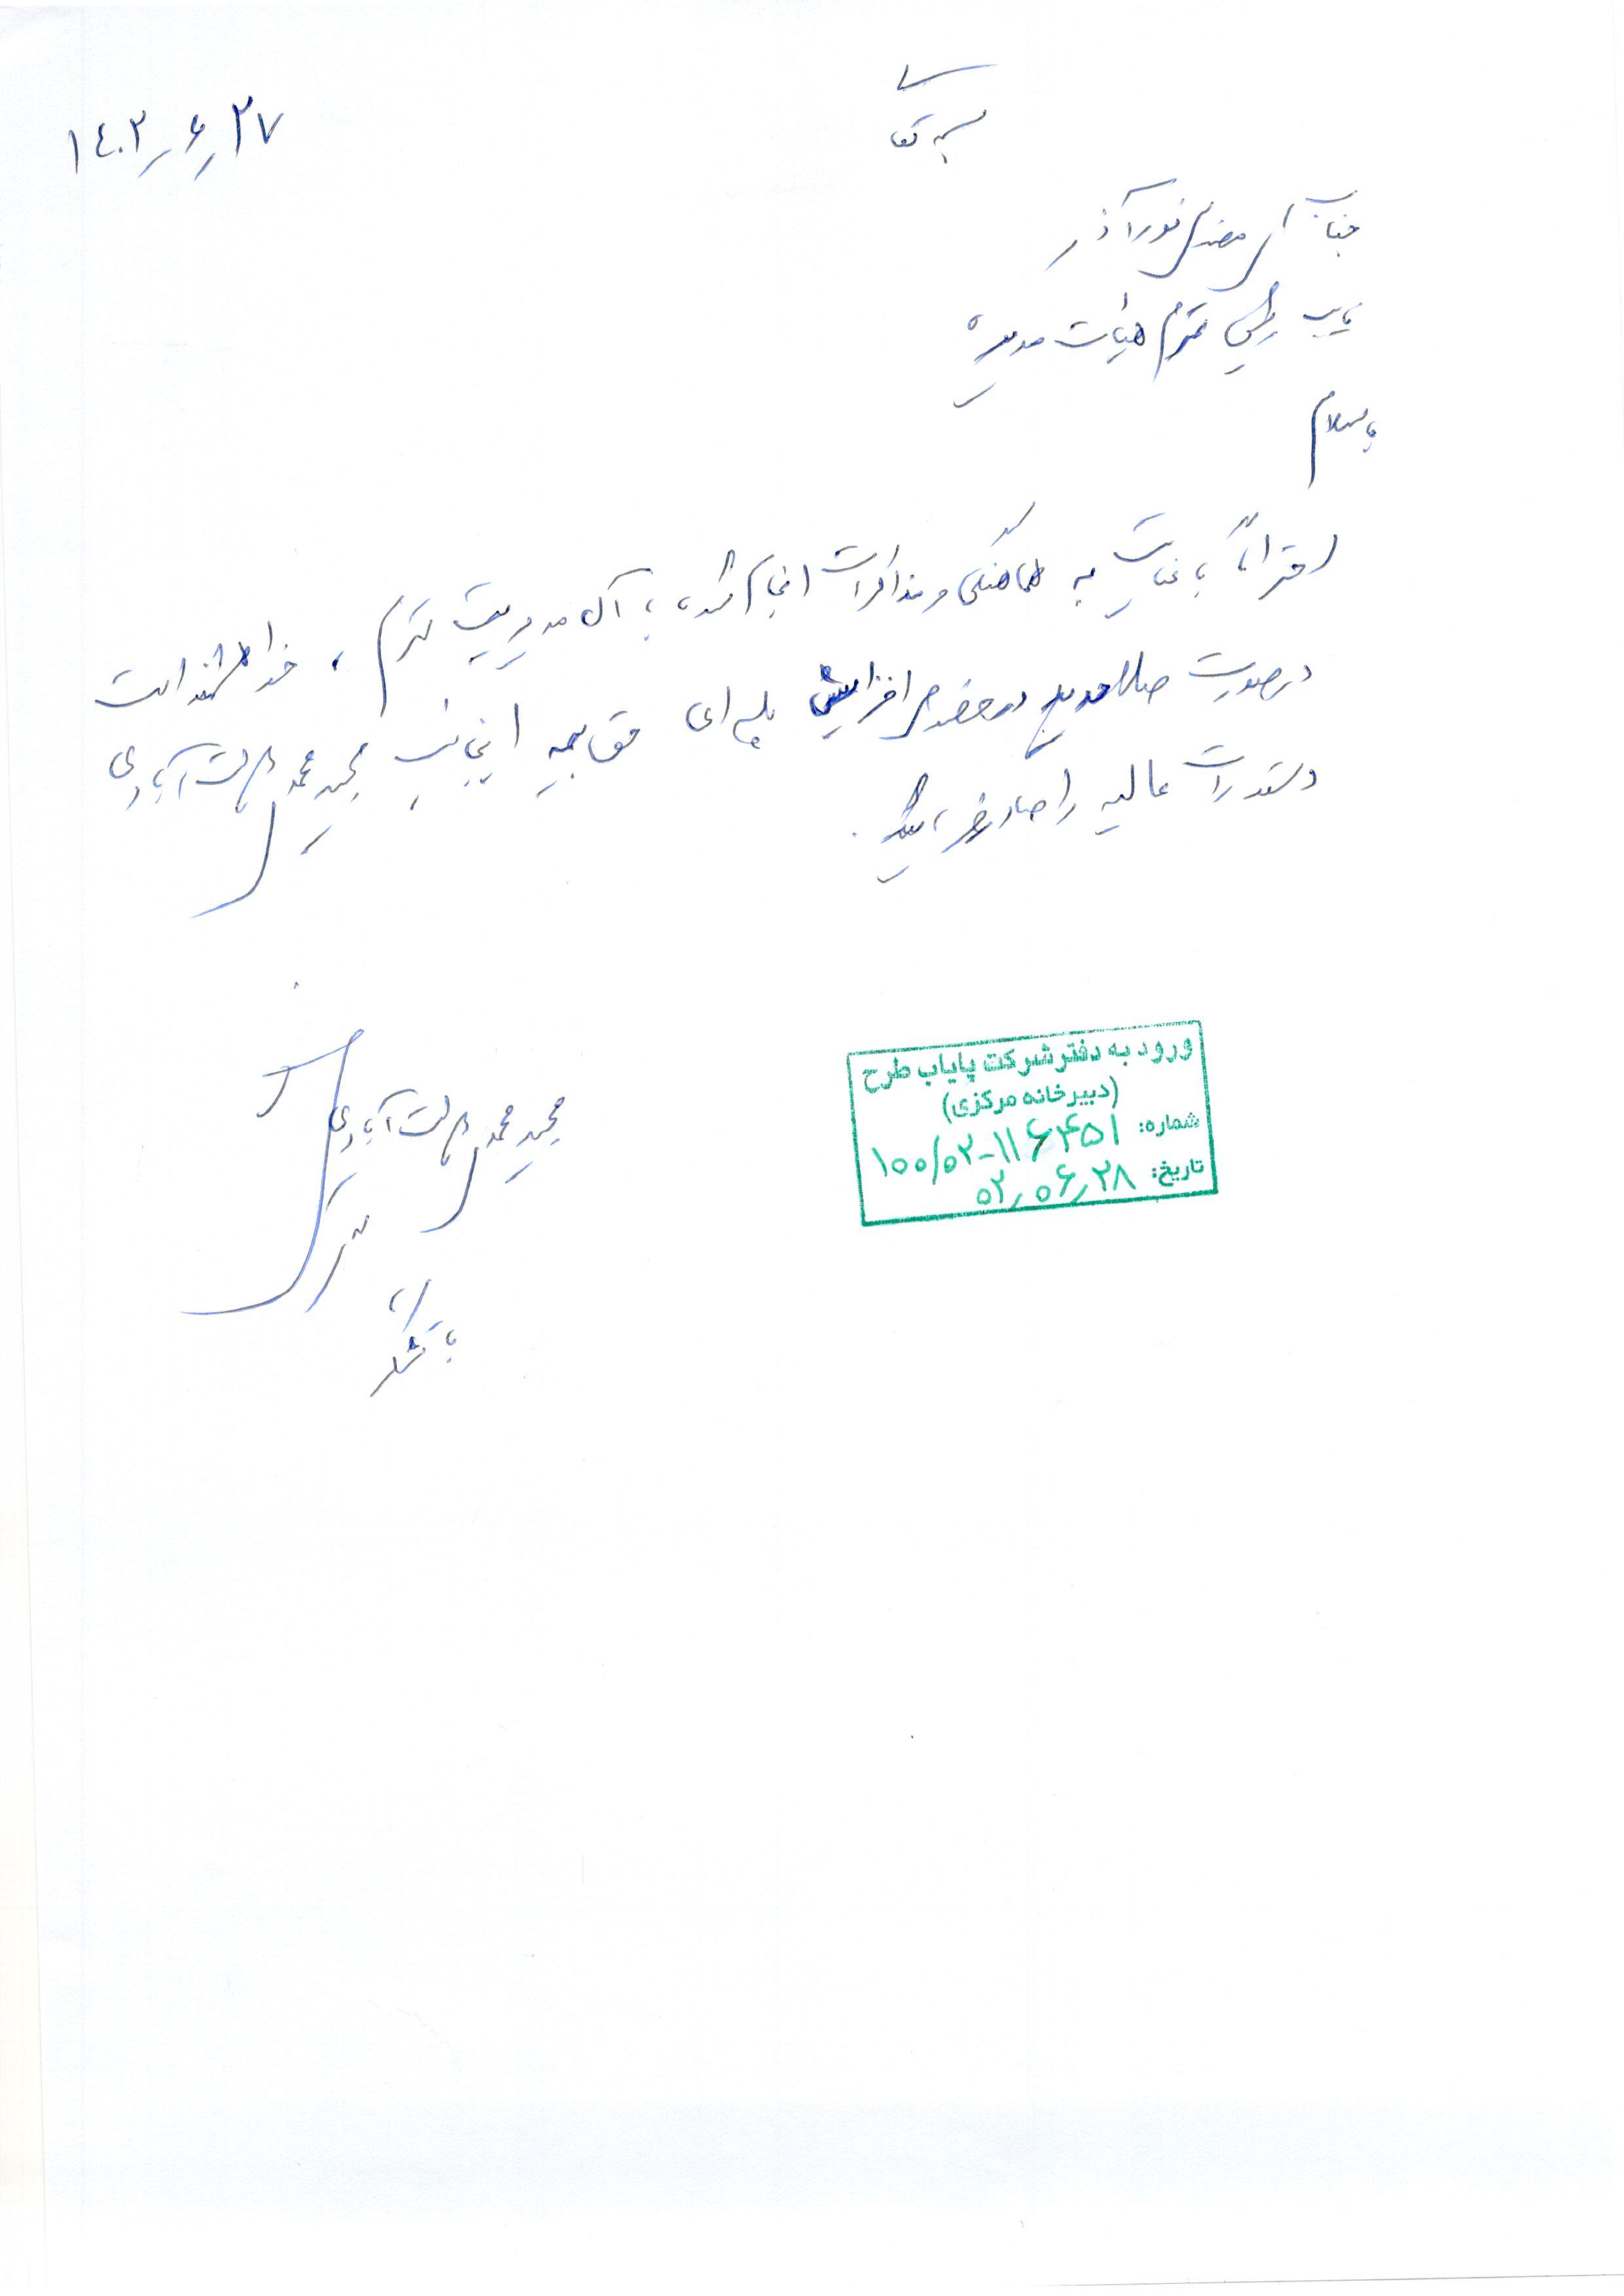 بسمه تعالی
۱۴۰۲/۶/۲۷
جناب آقای مهندس نورآذر
نایب رئیس محترم هیات مدیره
با سلام
احتراماً با عنایت به هماهنگی و مذاکرات انجام شده با آن مدیریت محترم ، خواهشمند است
در صورت صلاحدید در خصوص افزایش پله ای حقوق اینجانب مجید محمد آبادی
دستورات عالیه را صادر فرمائید .
ورود به دفتر شرکت پایاب طرح
(دبیرخانه مرکزی)
شماره: ۱۰۰/۰۲-۱۱۶۴۵۱
تاریخ: ۰۲/۰۶/۲۸
مجید محمد آبادی
با تشکر